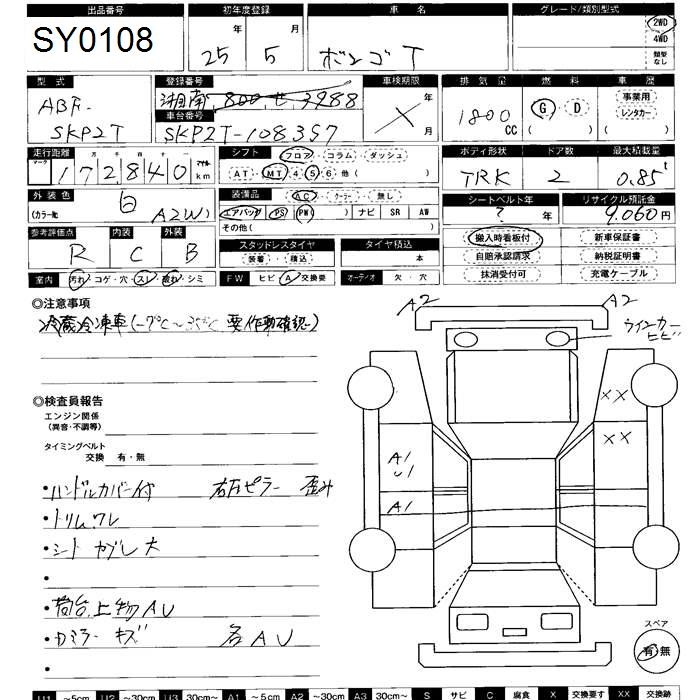 出品番号 初年度登録 車名 グレード/類別型式
SY0108 25年 5月 ボンゴT 2WD
4WD
類型なし
型式 登録番号 車検期限 排気量 燃料 車歴
ABF- 湘南 800 せ 3988 X 年 月 1800cc G・D ( ) 事業用 レンタカー ( )
SKP2T 車台番号
SKP2T-108357
走行距離 シフト フロア・コラム・ダッシュ ボディ形状 ドア数 最大積載量
マーク 十 万 千 百 十 一 マイル
172840km AT・MT 4 5 6 他( ) TRK 2 0.85t
外装色 装備品 AC・クーラー・無し シートベルト年 リサイクル預託金
(カラーNo. 白 A2W) エアバッグ( ) PS PW( ) ナビ SR AW ?年 9,060円
その他( )
参考評価点 内装 外装 スタッドレスタイヤ タイヤ積込 搬入時看板付 新車保証書
R C B 装着・積込 本 自賠承認請求 納税証明書
室内 汚れ・コゲ・穴・スレ・破れ・シミ FW ヒビ・A・交換要 オーディオ 欠・穴 抹消受付可 充電ケーブル
◎注意事項 A2 A2
冷蔵冷凍車(-7℃~35℃ 要作動確認) ウインカーヒビ
◎検査員報告 XX
エンジン関係
(異音・不調等)
タイミングベルト XX
交換 有・無 A1
U1
・ハンドルカバー付 右左ピラー 歪み
A1
・トリムワレ
・シート カブレ大
・
・荷台上物AU
・カミラーキズ 各AU スペア
・ 有・無
U1 ~5cm U2 ~30cm U3 30cm~ A1 ~5cm A2 ~30cm A3 30cm~ S サビ C 腐食 X 交換要す XX 交換跡